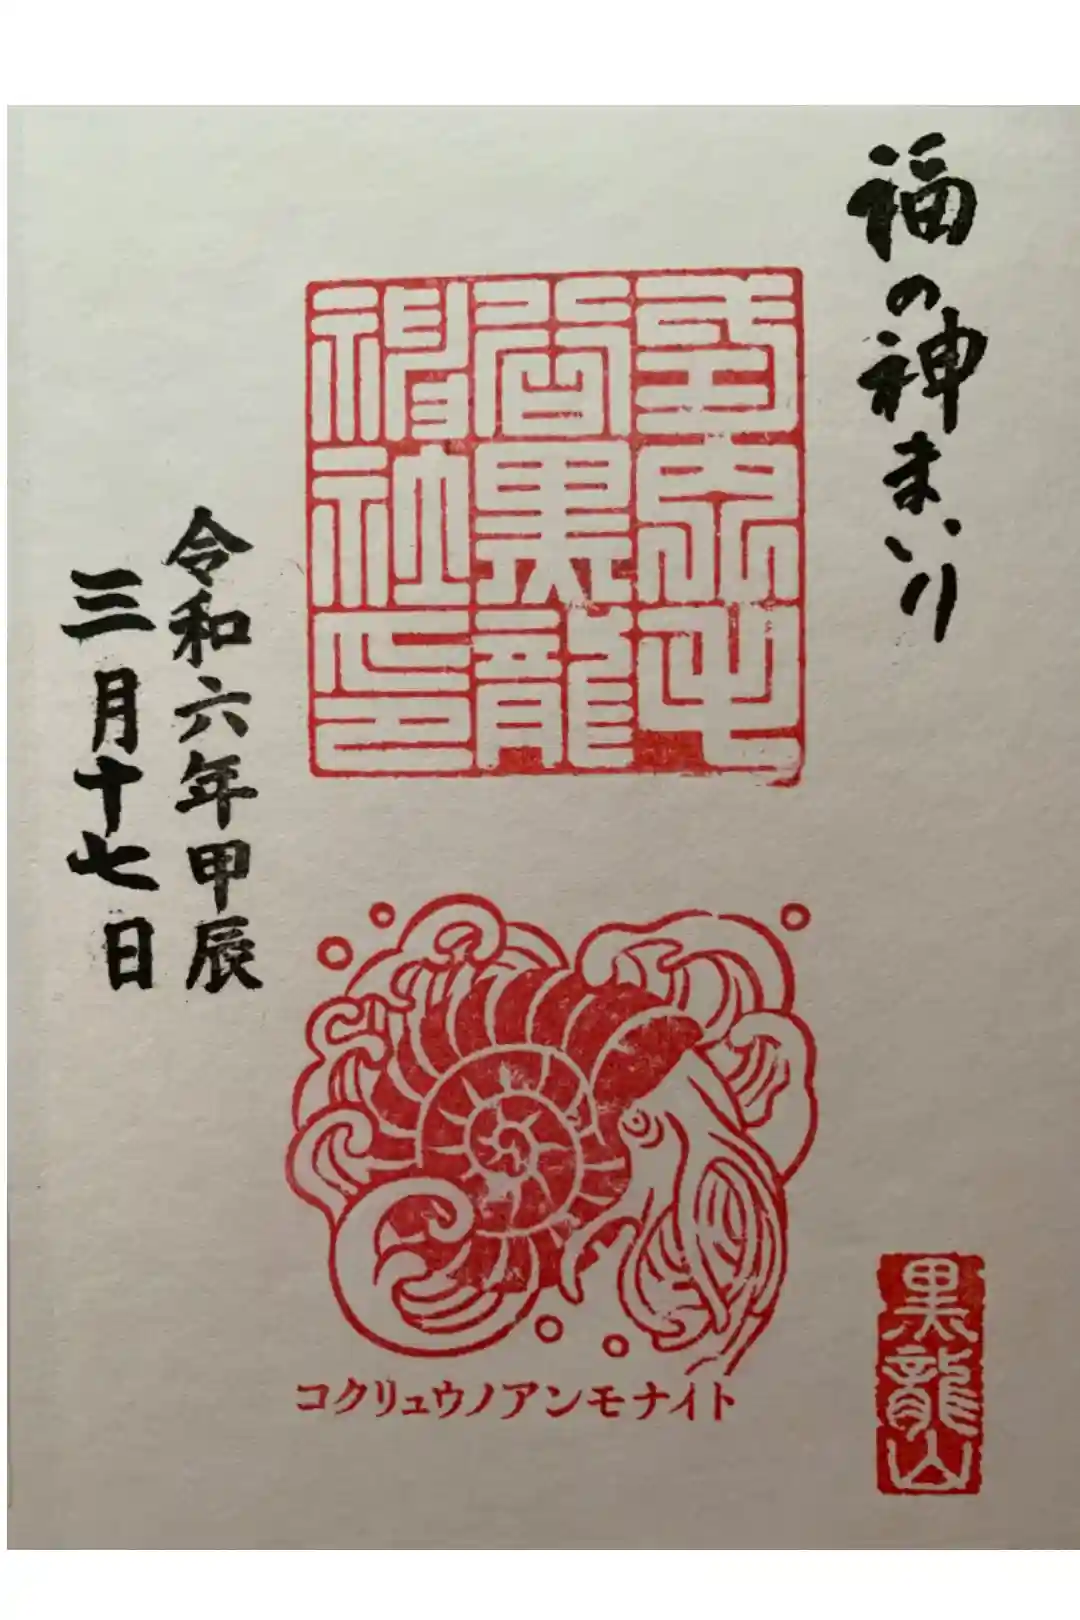 福の神まいり
毛
谷黒龍
神社印
令和六年甲辰
三月十七日
コクリュウノアンモナイト
黒龍山